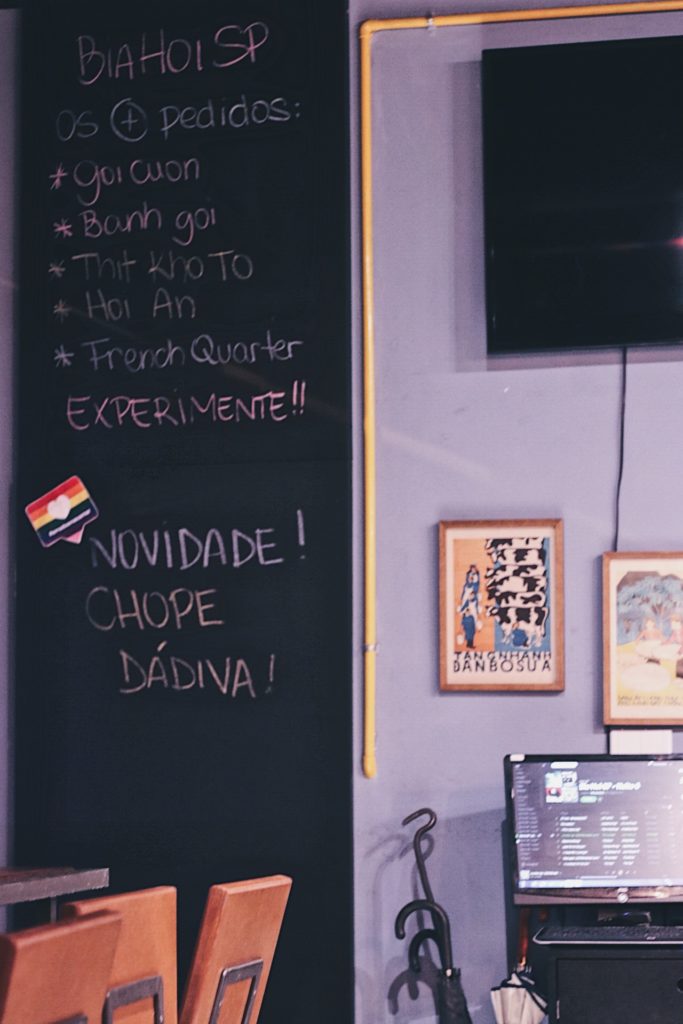 BIAHOI SP
Os + pedidos:
* goi cuon
* Banh goi
* Thit Kho To
* Hoi An
* French Quarter
EXPERIMENTE!!
NOVIDADE!
CHOPE
DÁDIVA!
TANG NHANH
DAN BO SUA